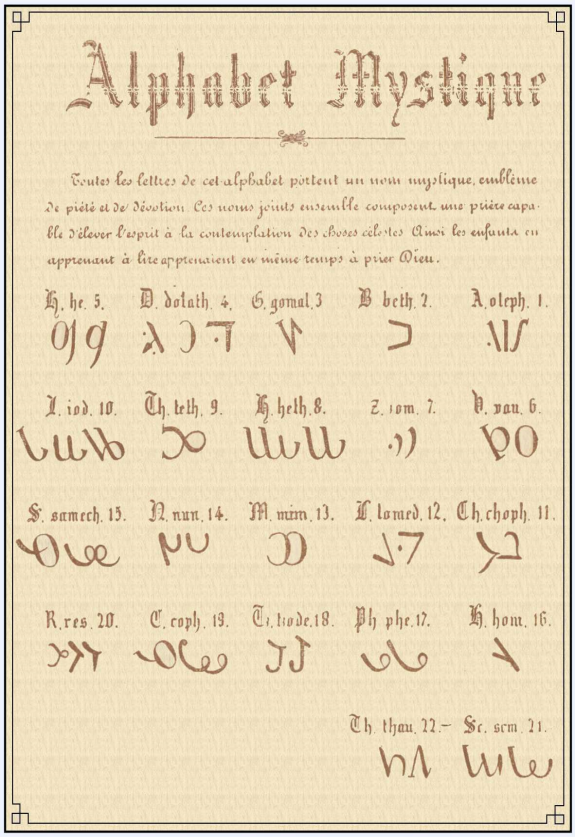 Alphabet Mystique
Toutes les lettres de cet alphabet portent un nom mystique, emblème
de piété et de dévotion. Ces noms joints ensemble composent une prière capa-
ble d'élever l'esprit à la contemplation des choses célestes Ainsi les enfants en
apprenant à lire apprenaient en même temps à prier Dieu.
H. he. 5. D. dolath. 4. G. gomal. 3 B beth. 2. A. oleph. 1.
I. iod. 10. Th. teth. 9. H. heth. 8. Z. 7. V. vau. 6.
S. samech. 15. N. nun. 14. M. mim. 13. L. lomed. 12. Ch. choph. 11.
R. res. 20. C. coph. 19. 18. Ph phe. 17. H. hom. 16.
Th. thau. 22.– 21.